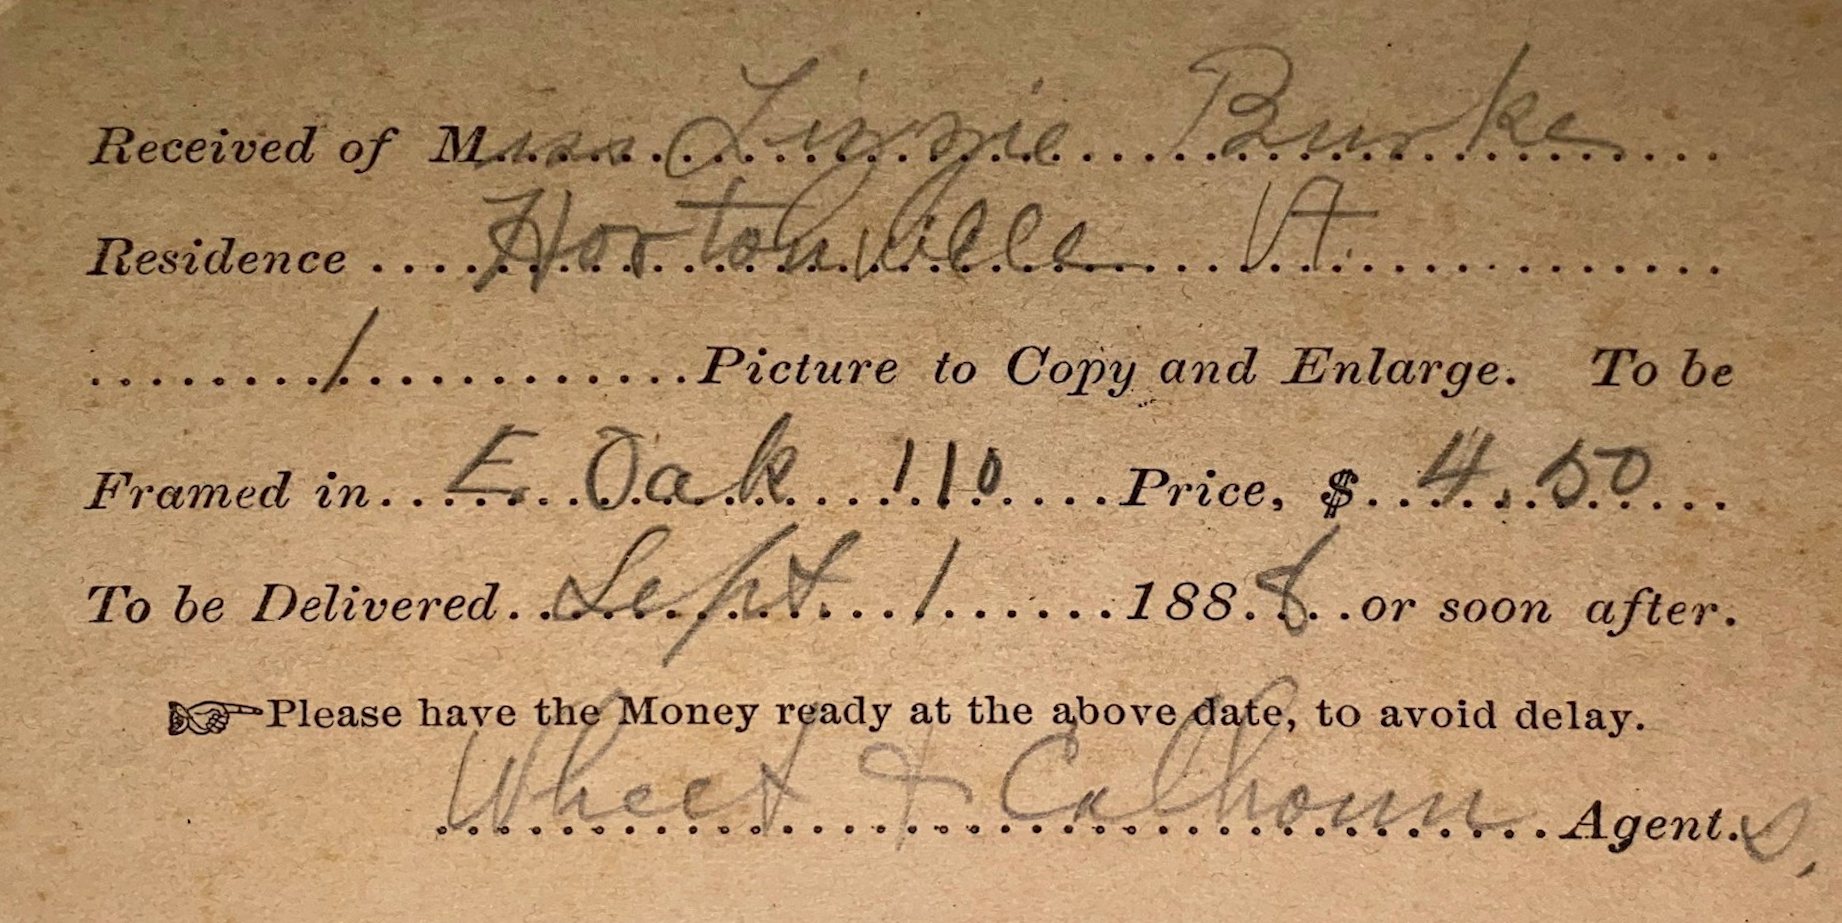 Received of Miss Lizzie Burke
Residence Hortonville Vt.
1 Picture to Copy and Enlarge. To be
Framed in E. Oak 110 Price, $ 4.50
To be Delivered Sept. 1 1888 or soon after.
☞Please have the Money ready at the above date, to avoid delay.
Wheet & Calhoun Agents.